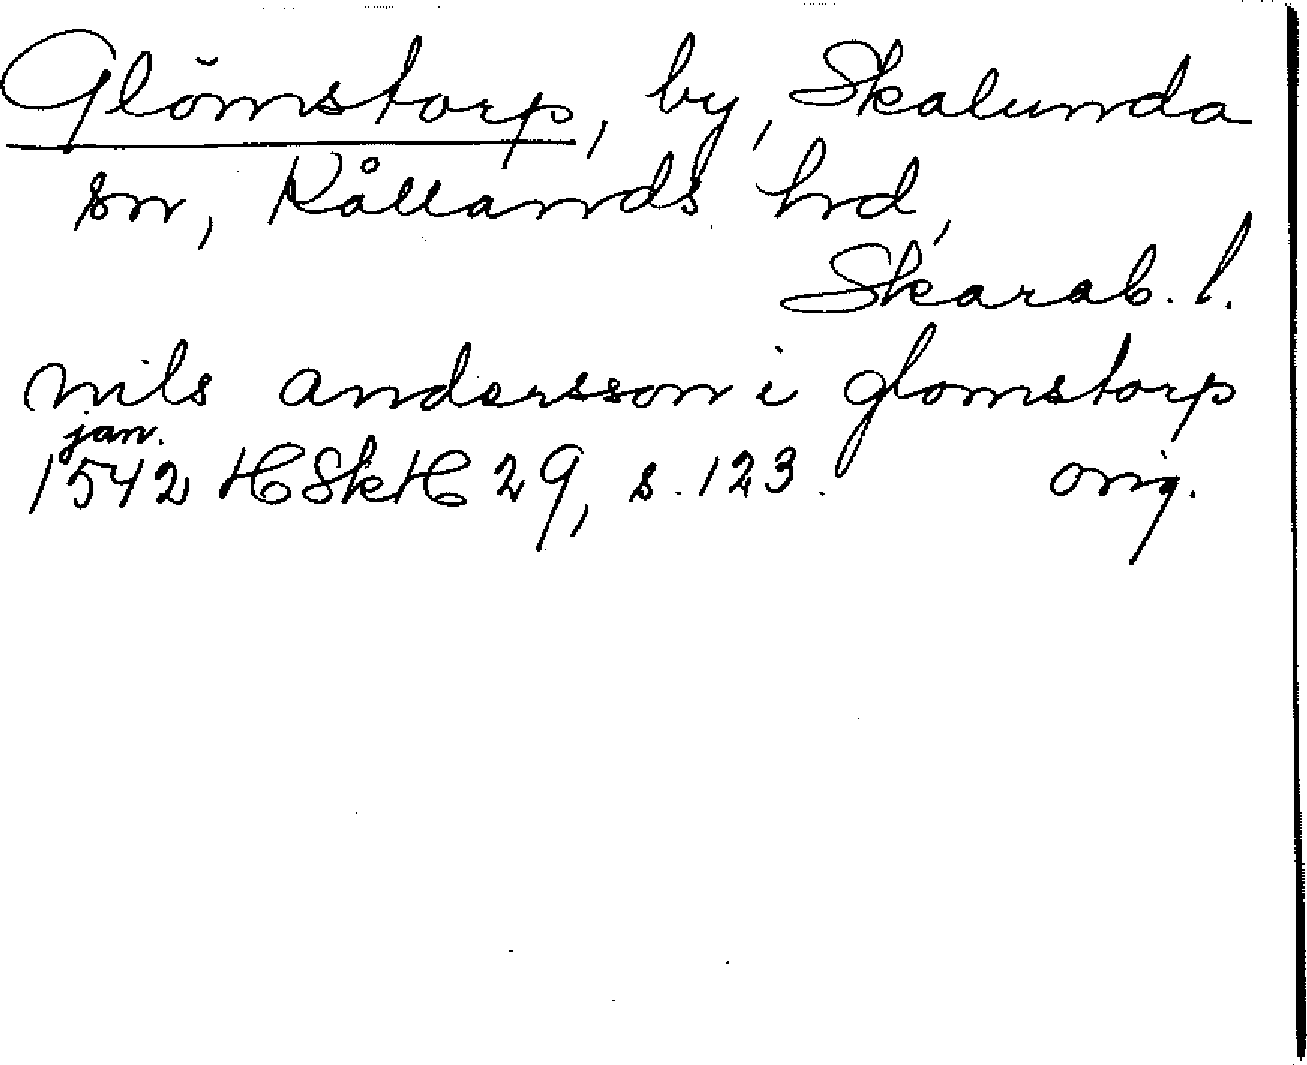 Glömstorp, by, Skalunda
sn, Kållands hrd,
Skarab. l.
nils andersson i glomstorp
jan.
1542 HSkH 29, s. 123. orig.